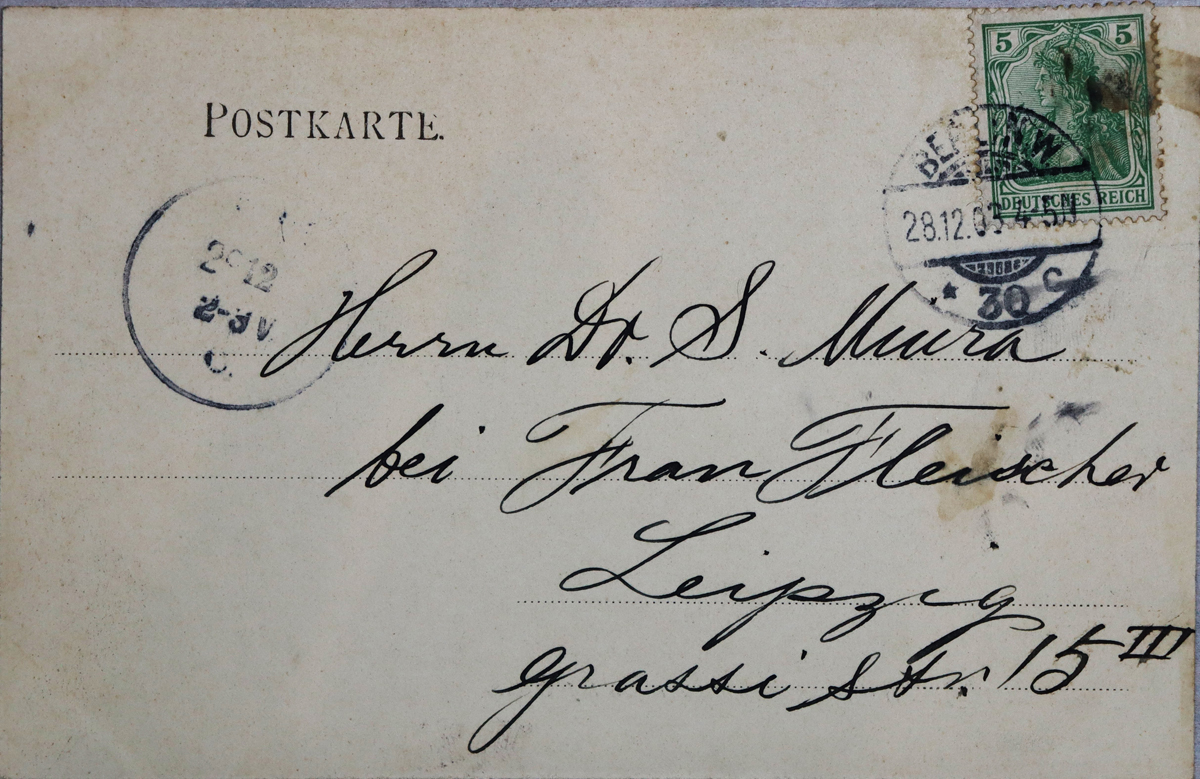 5 5
DEUTSCHES REICH
POSTKARTE.
BERLIN W
28.12.03. 4-5N
* 30 c
12
2-3 V
Herrn Dr. S. Miura
bei Frau Fleischer
Leipzig
grassi str. 15 III